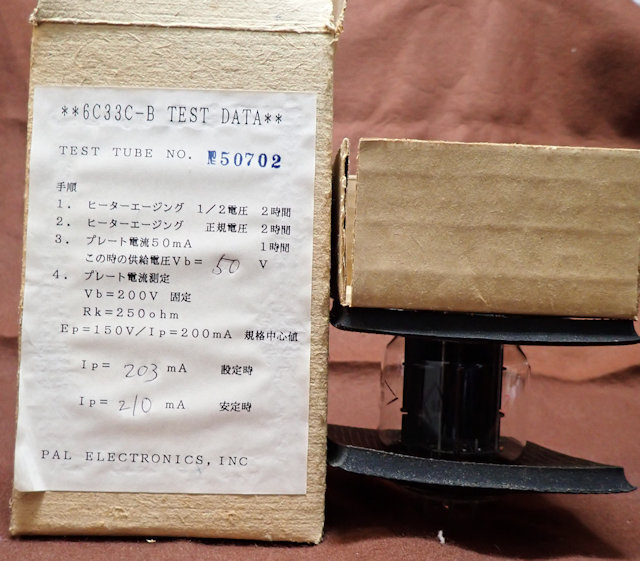 **6C33C-B TEST DATA**
TEST TUBE NO. №50702
手順
1. ヒーターエージング 1/2電圧 2時間
2. ヒーターエージング 正規電圧 2時間
3. プレート電流50mA 1時間
この時の供給電圧Vb= 50 V
4. プレート電流測定
Vb=200V 固定
Rk=250ohm
Ep=150V/Ip=200mA 規格中心値
Ip= 203 mA 設定時
Ip= 210 mA 安定時
PAL ELECTRONICS, INC